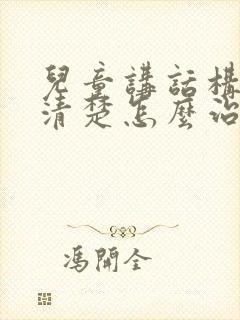 兒童講話構
清楚怎麼治
馮開全